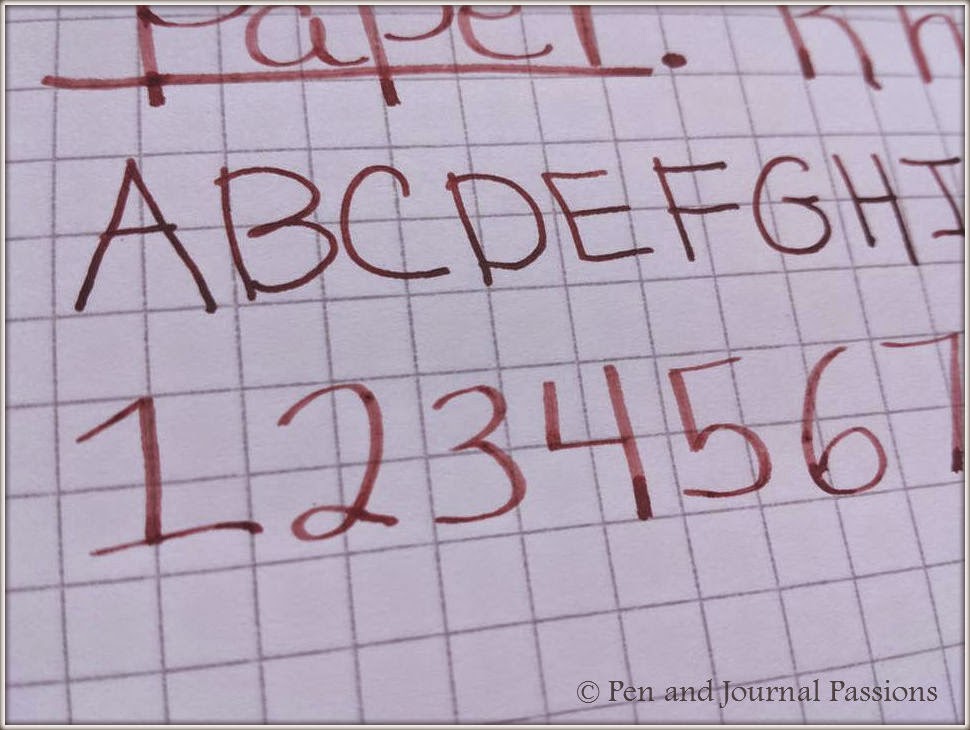 Paper. Rh
ABCDEFGHI
1234567
© Pen and Journal Passions